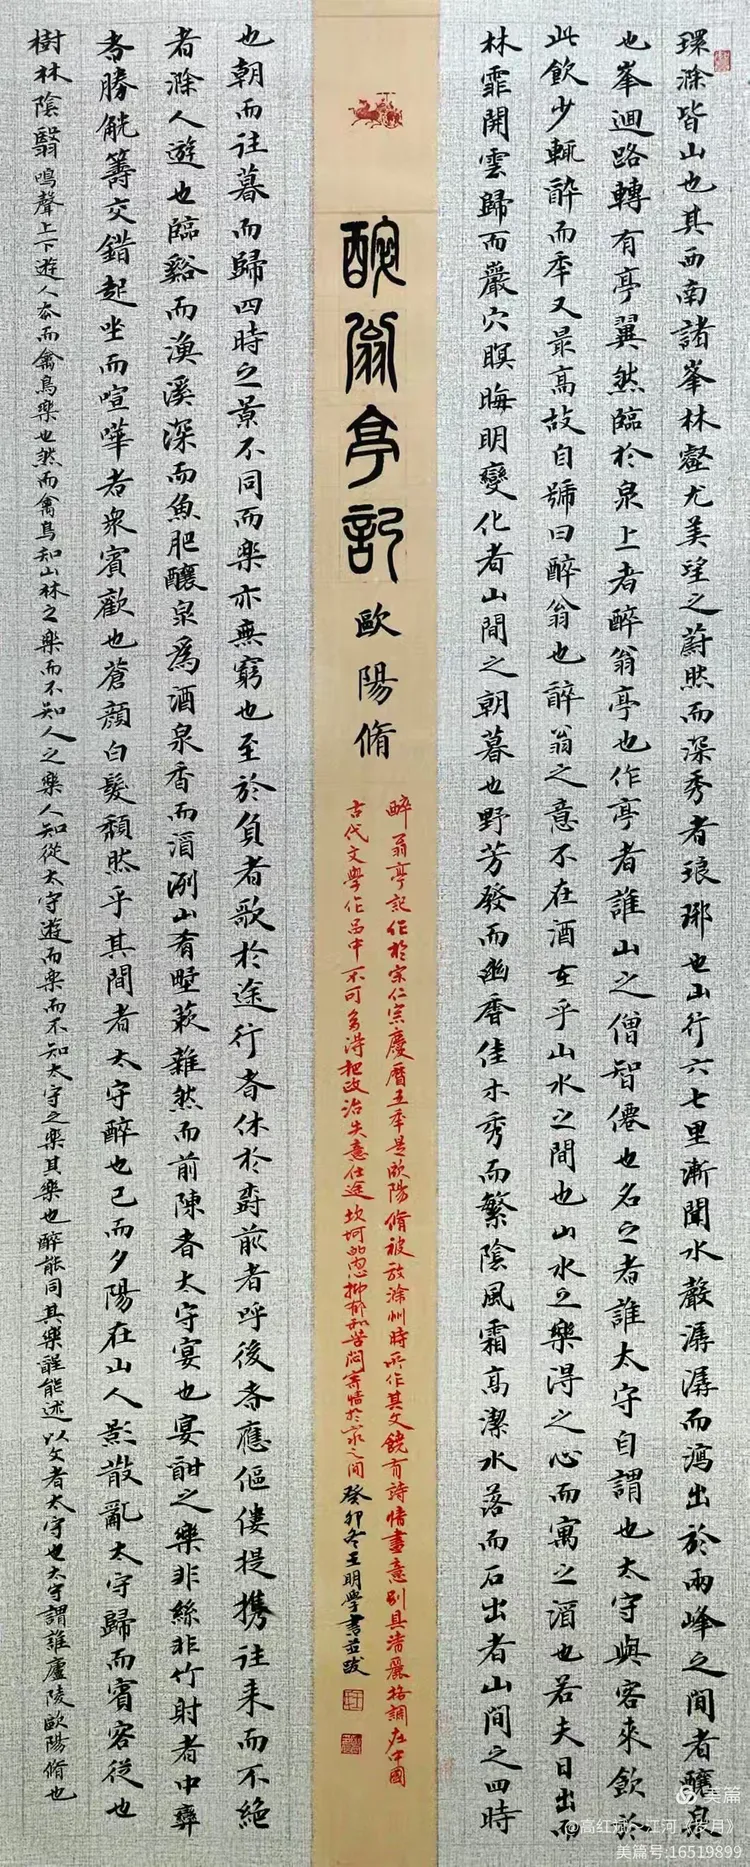 環滁皆山也其西南諸峯林壑尤美望之蔚然而深秀者琅琊也山行六七里漸聞水聲潺潺而瀉出於兩峰之間者釀泉
也峯迴路轉有亭翼然臨於泉上者醉翁亭也作亭者誰山之僧智僊也名之者誰太守自謂也太守與客來飲於
此飲少輒醉而年又最高故自號曰醉翁也醉翁之意不在酒在乎山水之間也山水之樂得之心而寓之酒也若夫日出而
林霏開雲歸而巖穴暝晦明變化者山間之朝暮也野芳發而幽香佳木秀而繁陰風霜高潔水落而石出者山間之四時
醉翁亭記
歐陽脩
醉翁亭記作於宗仁宗慶曆五年是歐陽脩被放滁州時所作其文饒有詩情畫意別具清麗格調在中國
古代文學作品中不可多得把政治失意仕途坎坷的內心抑郁和苦悶寄情於山水之间
癸卯冬王明學書並跋
也朝而往暮而歸四時之景不同而楽亦無窮也至於負者歌於途行者休於樹前者呼後者應傴僂提携往来而不絶
者滁人遊也臨谿而漁溪深而魚肥釀泉爲酒泉香而酒洌山肴野蔌雜然而前陳者太守宴也宴酣之樂非絲非竹射者中弈
者勝觥籌交錯起坐而喧嘩者衆賓歡也蒼顔白髮頹然乎其間者太守醉也已而夕陽在山人影散亂太守歸而賓客從也
樹林陰翳鳴聲上下遊人去而禽鳥樂也然而禽鳥知山林之樂而不知人之樂人知從太守遊而楽而不知太守之樂其樂也醉能同其樂醒能述以文者太守也太守謂誰廬陵歐陽脩也
美篇
@高红斌~江河《岁月》
美篇号:16519899